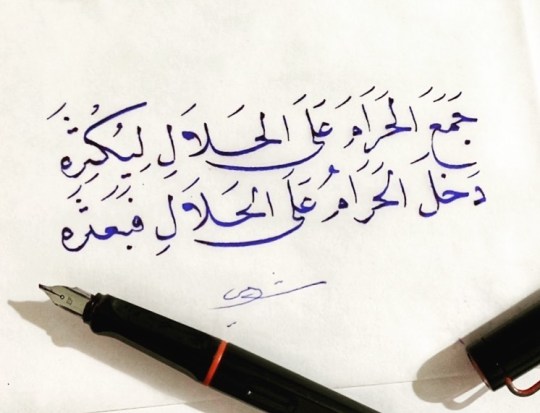 جَمَعَ الحَرَامَ عَلَى الحَلَالِ لِيُكْثِرَهُ
دَخَلَ الحَرَامُ عَلَى الحَلَالِ فَبَعْثَرَهُ